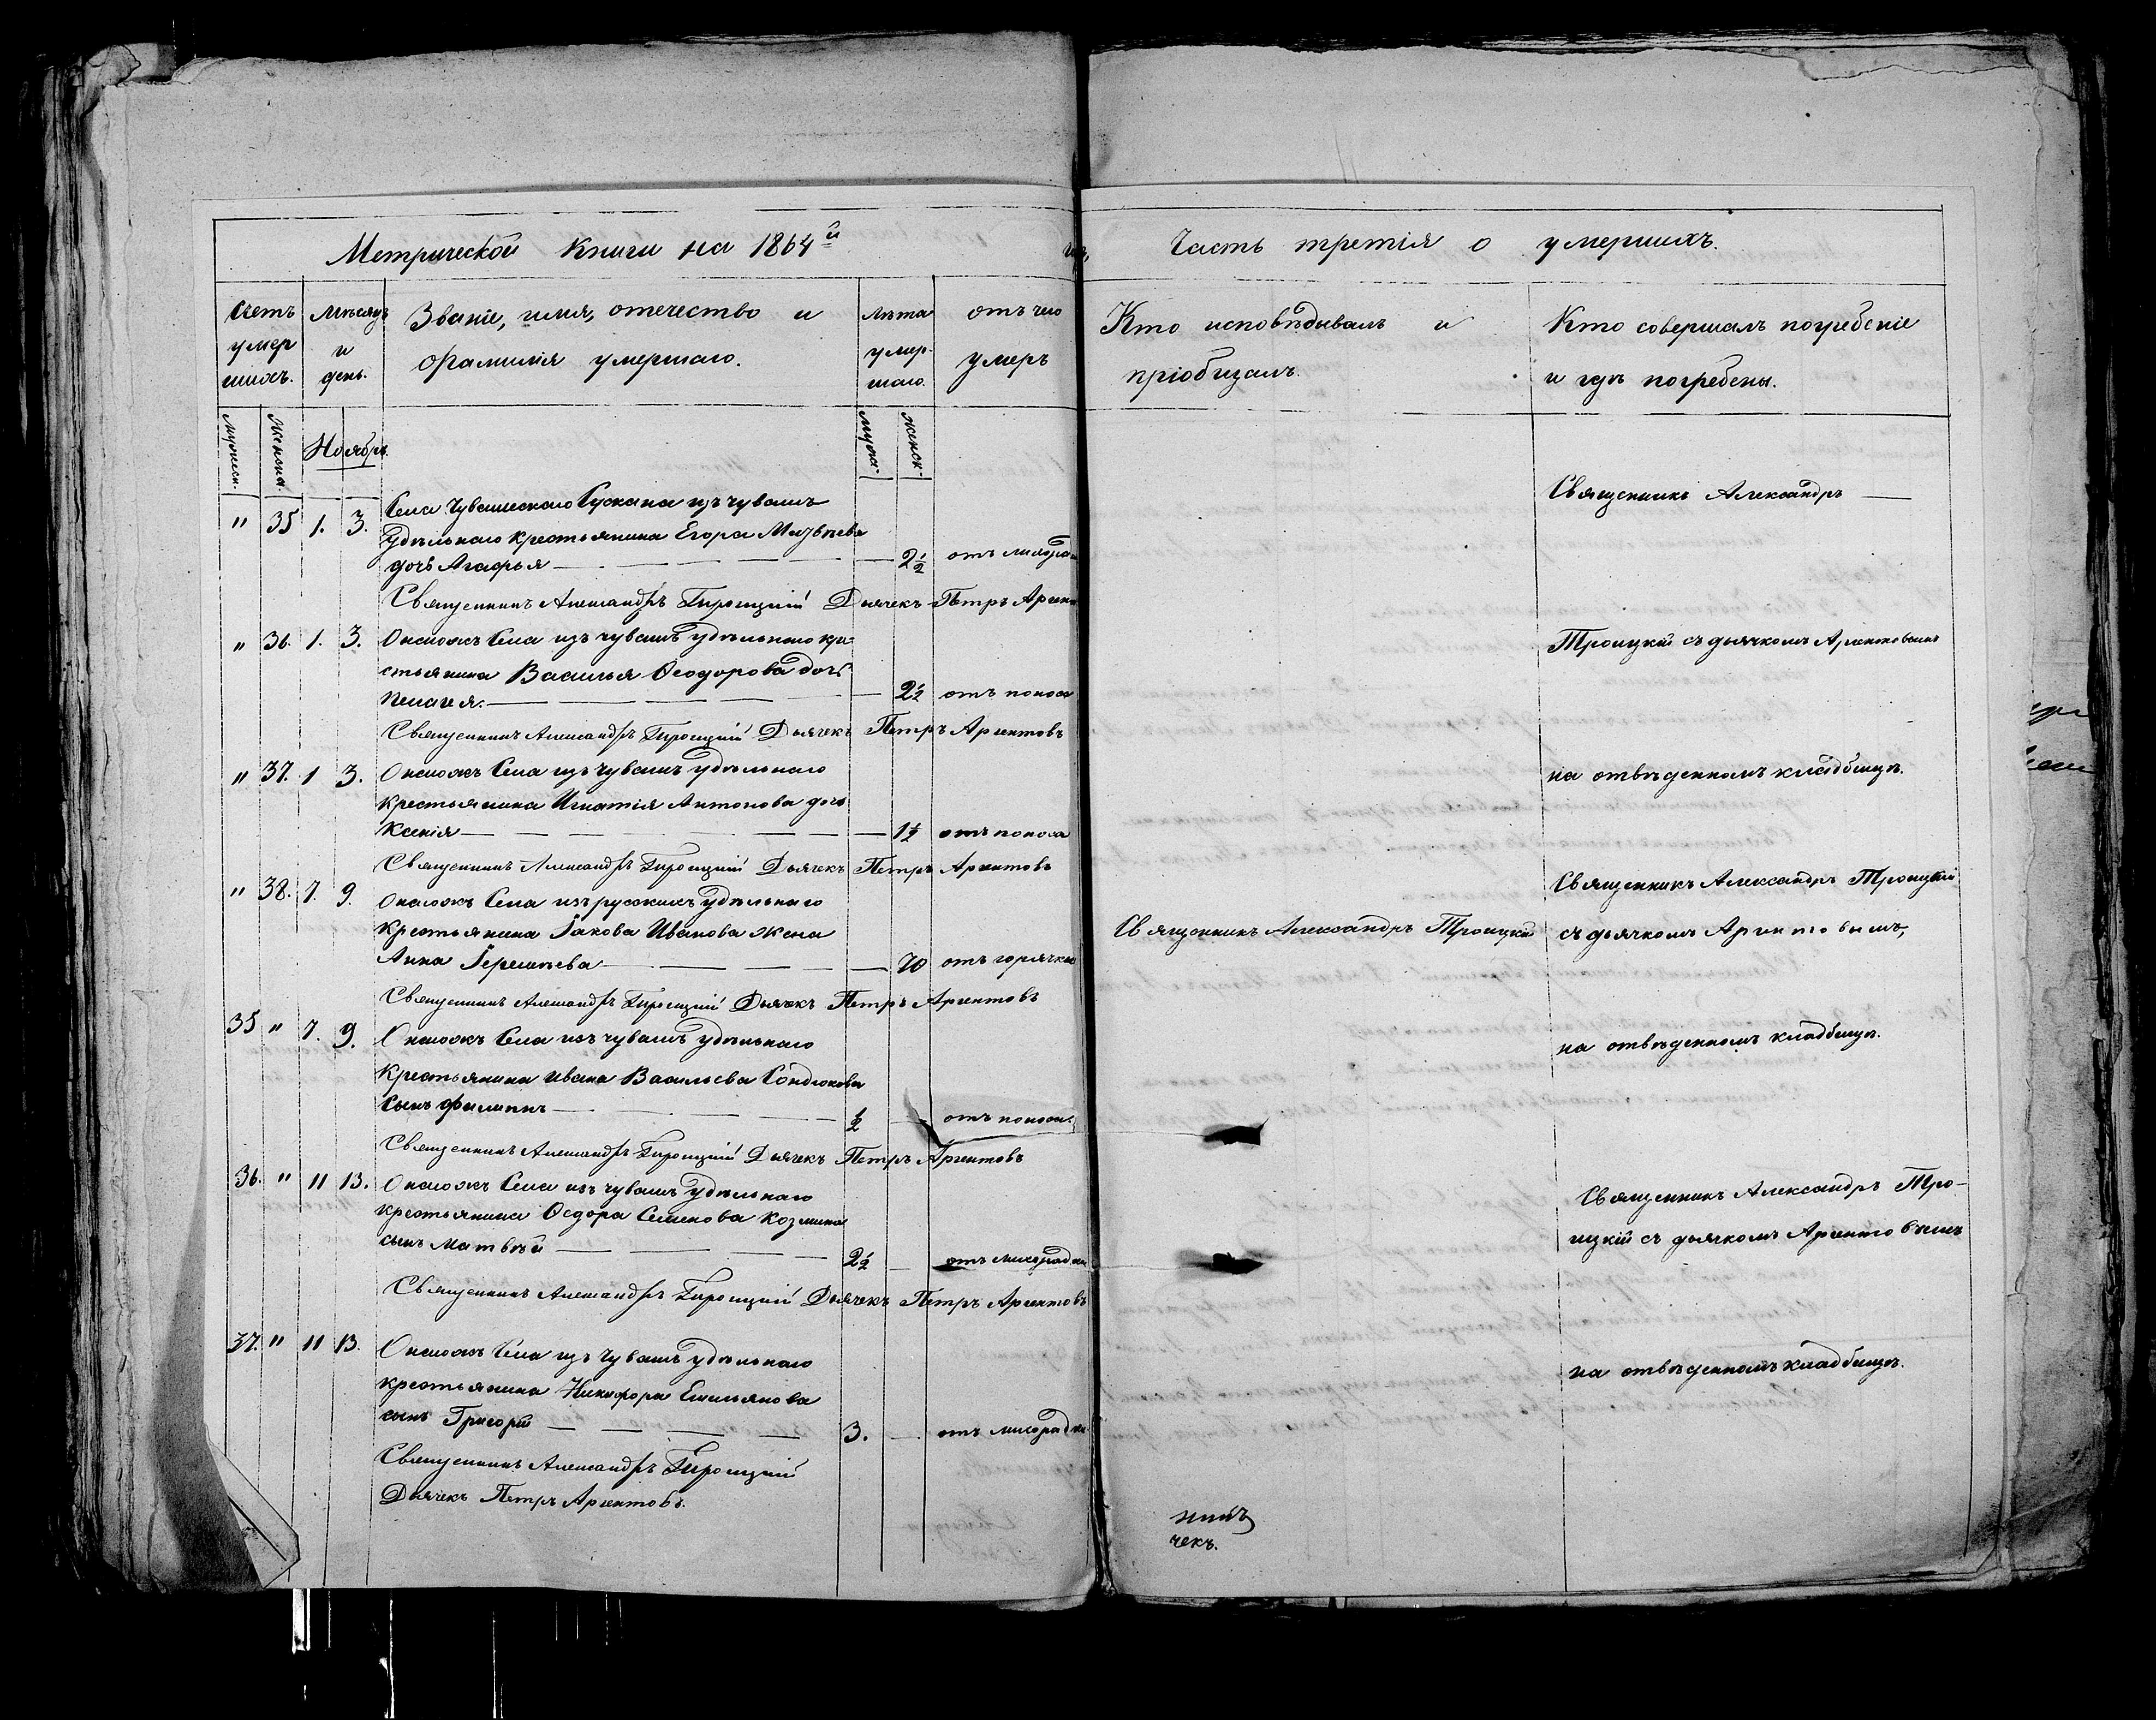 Метрической книги на 1864й
Часть третія о умершихъ.
Счетъ умер шихъ.
Мѣсяцъ и день.
Званіе, имя, отечество и фамилія умершаго.
Лѣта умер- шаго.
отъ чего умеръ
Кто исповѣдывалъ и пріобщалъ.
Кто совершалъ погребеніе и гдѣ погребены.
Женска.
Ноябрь.
женск.
" 35 1. 3. Села Чувашскаго Сускана изъ чувашъ
удѣльнаго крестьянина Егора Матвѣева
дочь Агафья — — 2½ отъ
Священникъ Александръ Троицкій Дьячекъ Петръ
Священникъ Александръ —
" 36. 1. 3. Онагожъ Села изъ чувашъ удѣльнаго кре-
стьянина Василья Ѳеодорова дочь
Пелагея. — — 2½ отъ поноса
Священникъ Александръ Троицкій Дьячекъ Петръ Аргентовъ
Троицкій съ дьячкомъ Аргентовымъ
" 37. 1 3. Онагожъ Села изъ чувашъ удѣльнаго
крестьянина Игнатія Антонова дочь
Ксенія — — 1½ отъ поноса
Священникъ Александръ Троицкій Дьячекъ Петръ Аргентовъ
на отвѣденномъ кладбищѣ.
" 38. 7. 9. Онагожъ Села изъ русскихъ удѣльнаго
крестьянина Іакова Иванова жена
Анна Іеремѣева — — 70 отъ горячки
Священникъ Александръ Троицкій Дьячекъ Петръ Аргентовъ
Священникъ Александръ Троицкій
Священникъ Александръ Троицкій
съ дьячкомъ Аргентовымъ,
35 " 7. 9. Онагожъ Села изъ чувашъ удѣльнаго
крестьянина Ивана Васильева Сондюкова
сынъ Филиппъ — ½ — отъ поноса.
Священникъ Александръ Троицкій Дьячекъ Петръ Аргентовъ
на отвѣденномъ кладбищѣ.
36. " 11 13. Онагожъ Села изъ чувашъ удѣльнаго
крестьянина Ѳедора Семенова Козмина
сынъ Матвѣй — 2½ — отъ лихорадки
Священникъ Александръ Троицкій Дьячекъ Петръ Аргентовъ
Священникъ Александръ Тро-
ицкій съ дьячкомъ Аргентовымъ
37. " 11 13. Онагожъ Села изъ чувашъ удѣльнаго
крестьянина Никифора Емельянова
сынъ Григорій — 3. — отъ лихорадки
Священникъ Александръ Троицкій
Дьячекъ Петръ Аргентовъ.
на отвѣденномъ кладбищѣ.
никъ
чекъ.